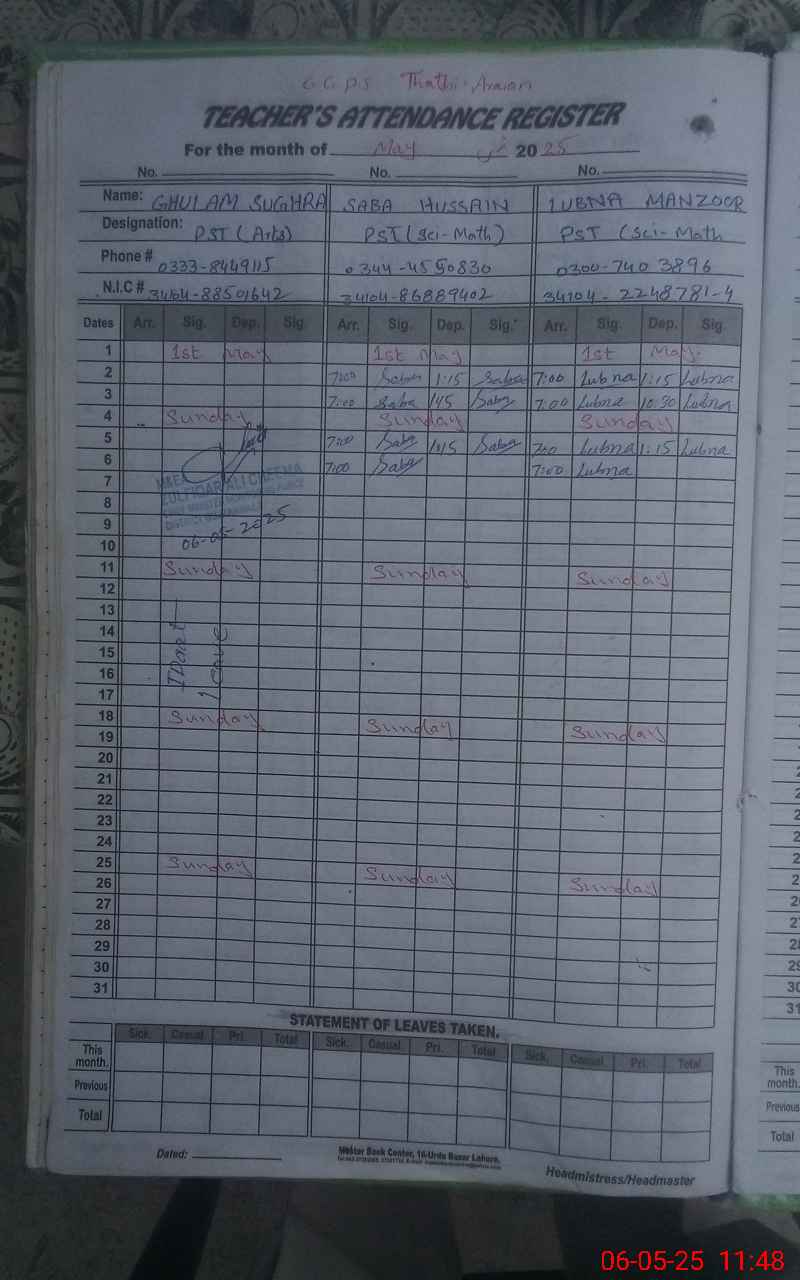 GGPS Thathi Araian
TEACHER'S ATTENDANCE REGISTER
For the month of May 2025
No. No. No.
Name: GHULAM SUGHRA SABA HUSSAIN LUBNA MANZOOR
Designation: PST (Arts) PST (Sci-Math) PST (Sci-Math
Phone # 0333-8449115 0344-4550830 0300-740 3896
N.I.C # 34104-88501642 34104-86889402 34104-2248781-4
Dates Arr. Sig. Dep. Sig. Arr. Sig. Dep. Sig. Arr. Sig. Dep. Sig.
1 1st May 1st May 1st May
2 7:00 Saba 1:15 Saba 7:00 Lubna 1:15 Lubna
3 7:00 Saba Saba 7:00 Lubna 10:30 Lubna
4 Sunday Sunday Sunday
5 7:00 Saba Saba 7:00 Lubna 1:15 Lubna
6 7:00 Saba 7:00 Lubna
7 M&EA
ZULFIQAR ALI CHEEMA
8
9
06-05-2025
10
11 Sunday Sunday Sunday
12
13
14
15
16
17
Leave
18 Sunday Sunday Sunday
19
20
21
22
23
24
25 Sunday Sunday Sunday
26
27
28
29
30
31
STATEMENT OF LEAVES TAKEN.
Sick. Casual Pri. Total Sick. Casual Pri. Total Sick. Casual Pri. Total
This month.
Previous
Total
Dated:
Master Book Center, 16-Urdu Bazar Lahore.
Headmistress/Headmaster
This month.
Previous
Total
06-05-25 11:48